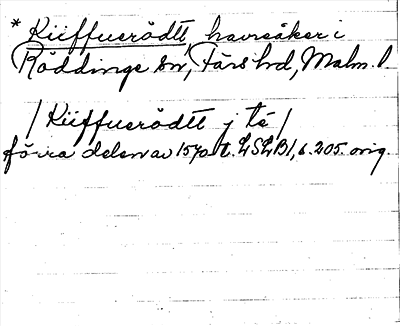 * Kiiffuerödtt, havreåker i
Röddinge sn, Färs hd, Malm. l.
/ Kiiffuerödtt j té /
förra delen av 1570-t. LSLB1, s. 205 orig.